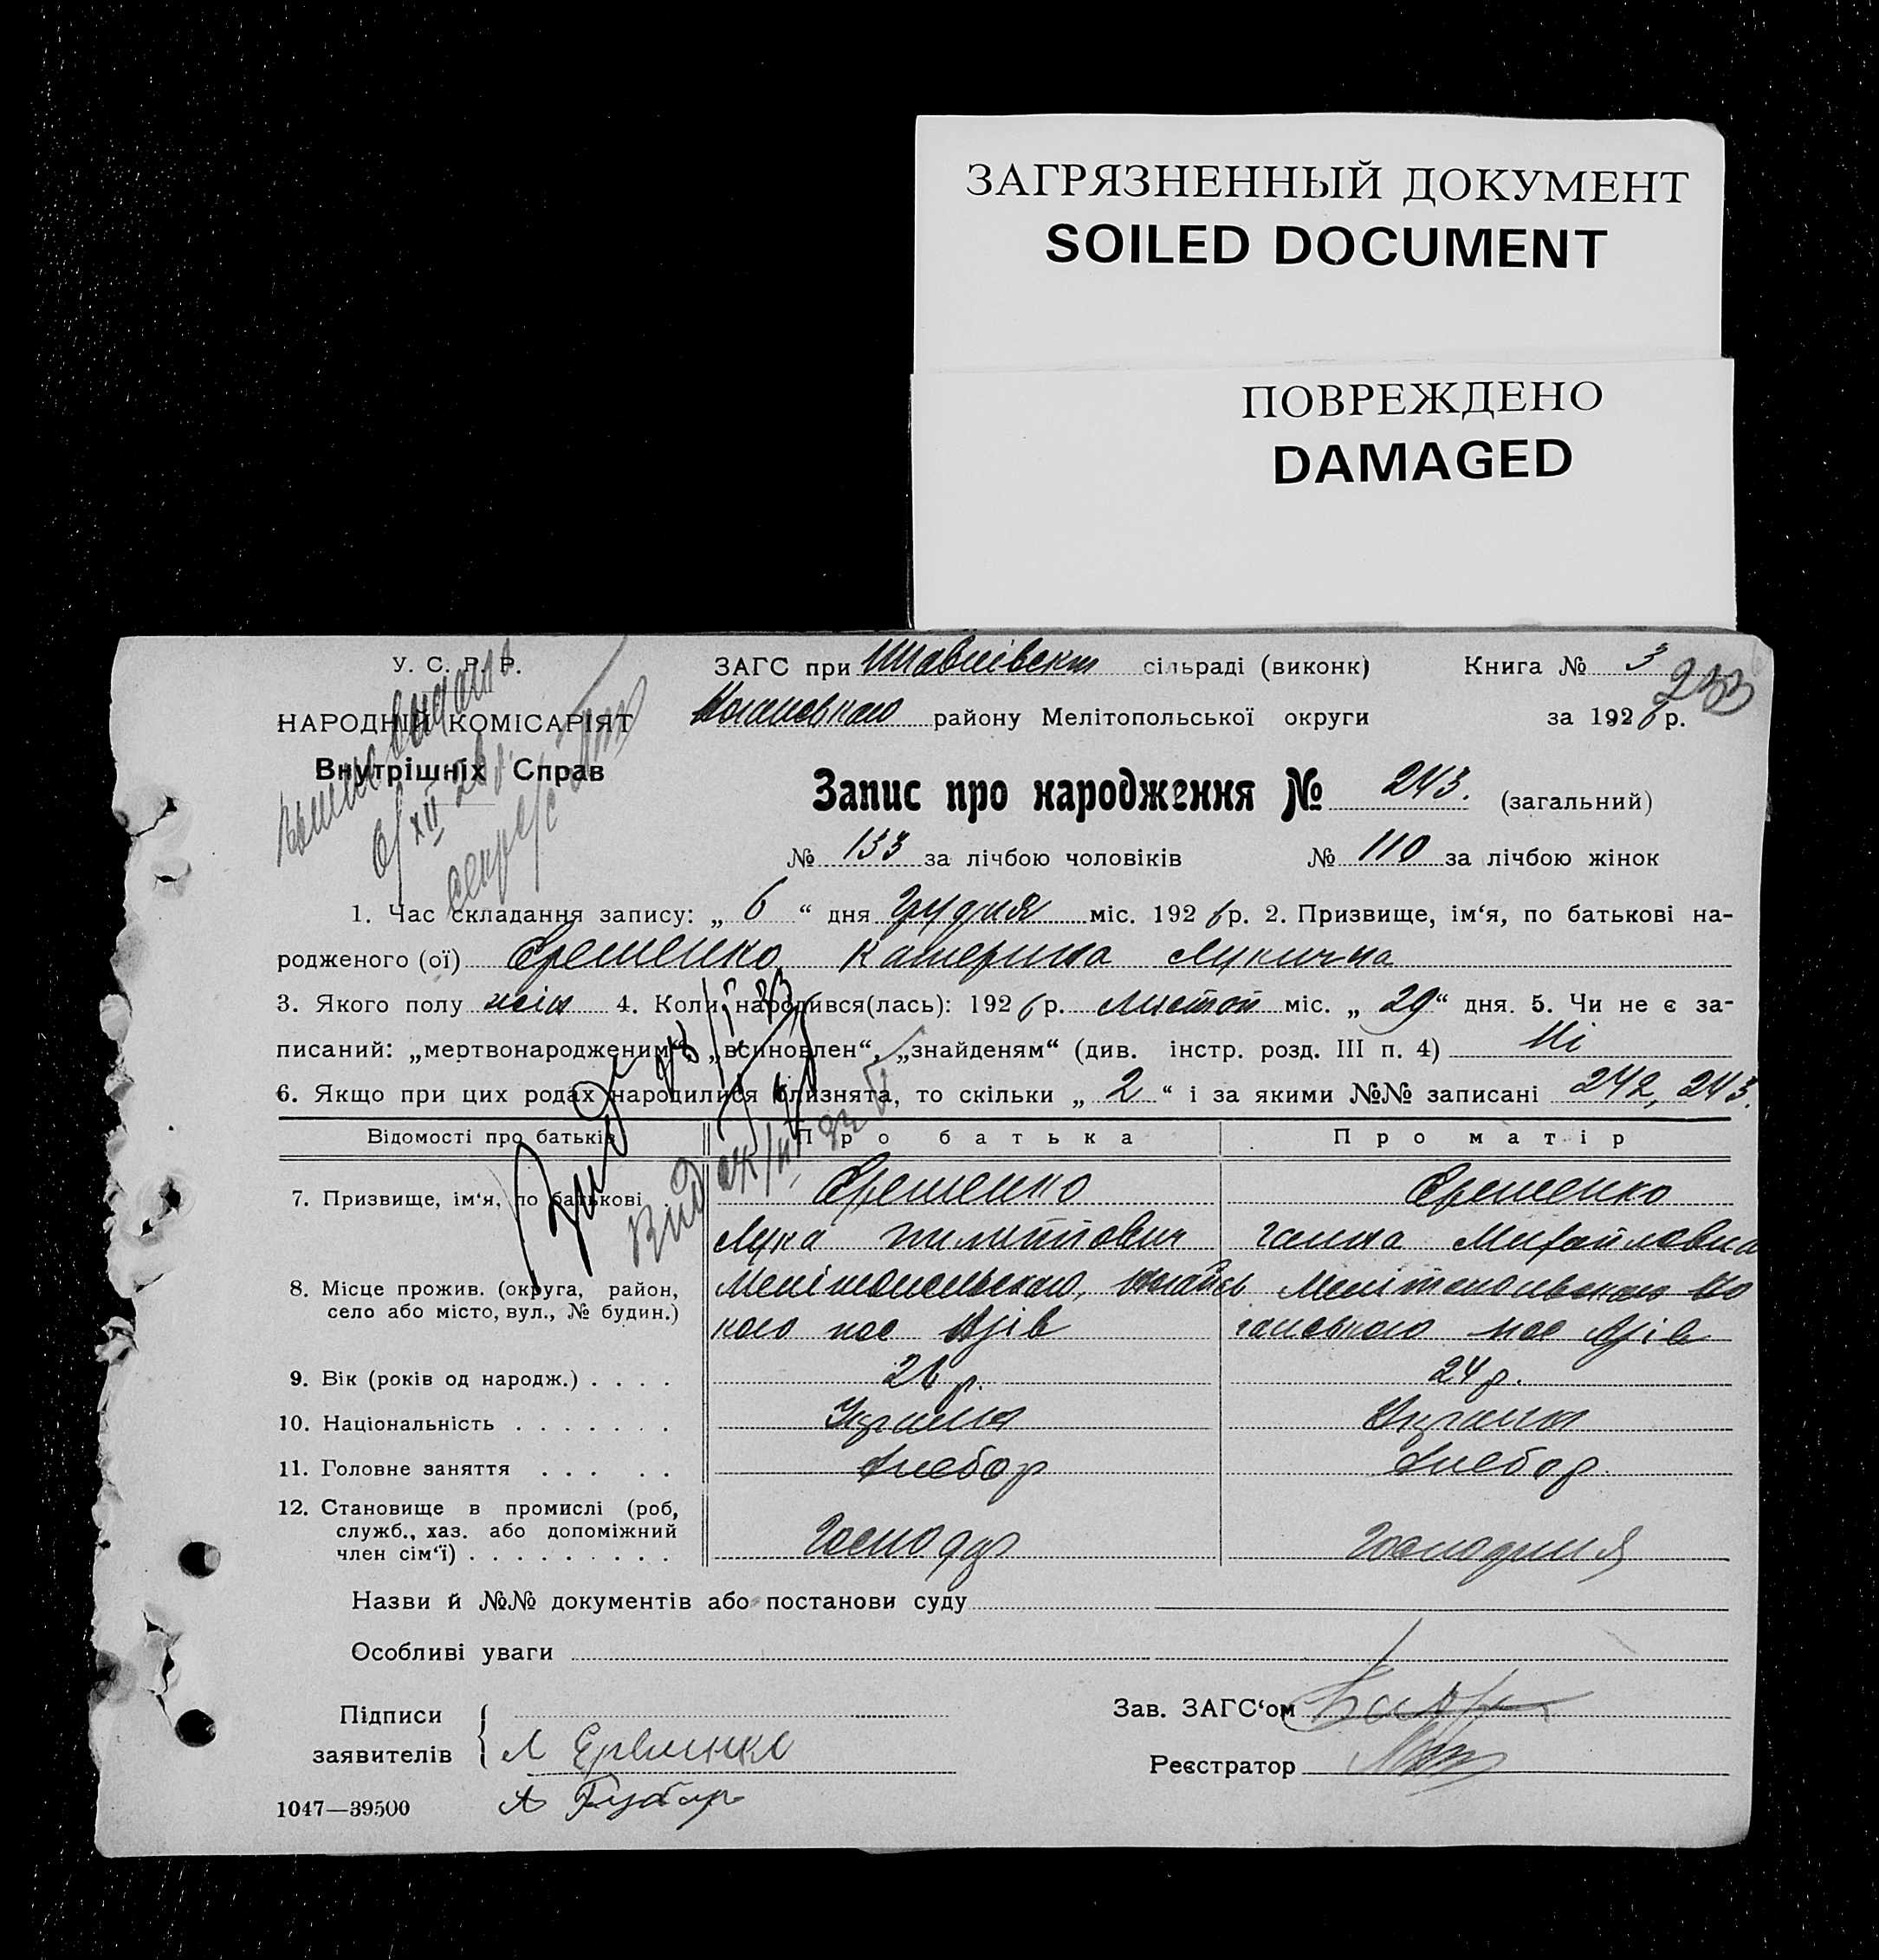 ЗАГРЯЗНЕННЫЙ ДОКУМЕНТ
SOILED DOCUMENT
ПОВРЕЖДЕНО
DAMAGED
У. С. Р. Р.
НАРОДНІЙ КОМІСАРІЯТ
Внутрішніх Справ
ЗАГС при сільраді (виконк) Книга № 3
233
району Мелітопольської округи за 1926 р.
Запис про народження № 243. (загальний)
№ 133 за лічбою чоловіків № 110 за лічбою жінок
1. Час складання запису: „ 6 “ дня Грудня міс. 1926 р. 2. Призвище, ім‘я, по батькові на-
родженого (ої) Єременко Катерина Лукична
3. Якого полу жін 4. Коли народився(лась): 1926 р. Листоп міс. „ 29 “ дня. 5. Чи не є за-
писаний: „мертвонародженим“, „всиновлен“, „знайденям“ (див. інстр. розд. III п. 4) Ні
6. Якщо при цих родах народилися близнята, то скільки „ 2 “ і за якими №№ записані 242, 243.
Відомості про батьків Про батька Про матір
7. Призвище, ім‘я, по батькові Єременко Єременко
Лука Михайловна
8. Місце прожив. (округа, район, Мелітопольського, Мелітопольського
село або місто, вул., № будин.)
9. Вік (років од народж.) . . . . 26 р. 24 р.
10. Національність . . . . . . . Україн
11. Головне заняття . . . . . Хлебор Хлебор.
12. Становище в промислі (роб, служб., хаз. або допоміжний член сім‘ї) . . . . . . . . . Господар Господиня
Назви й №№ документів або постанови суду
Особливі уваги
Підписи заявителів Л Єременко
Зав. ЗАГС‘ом
Реєстратор
1047—39500